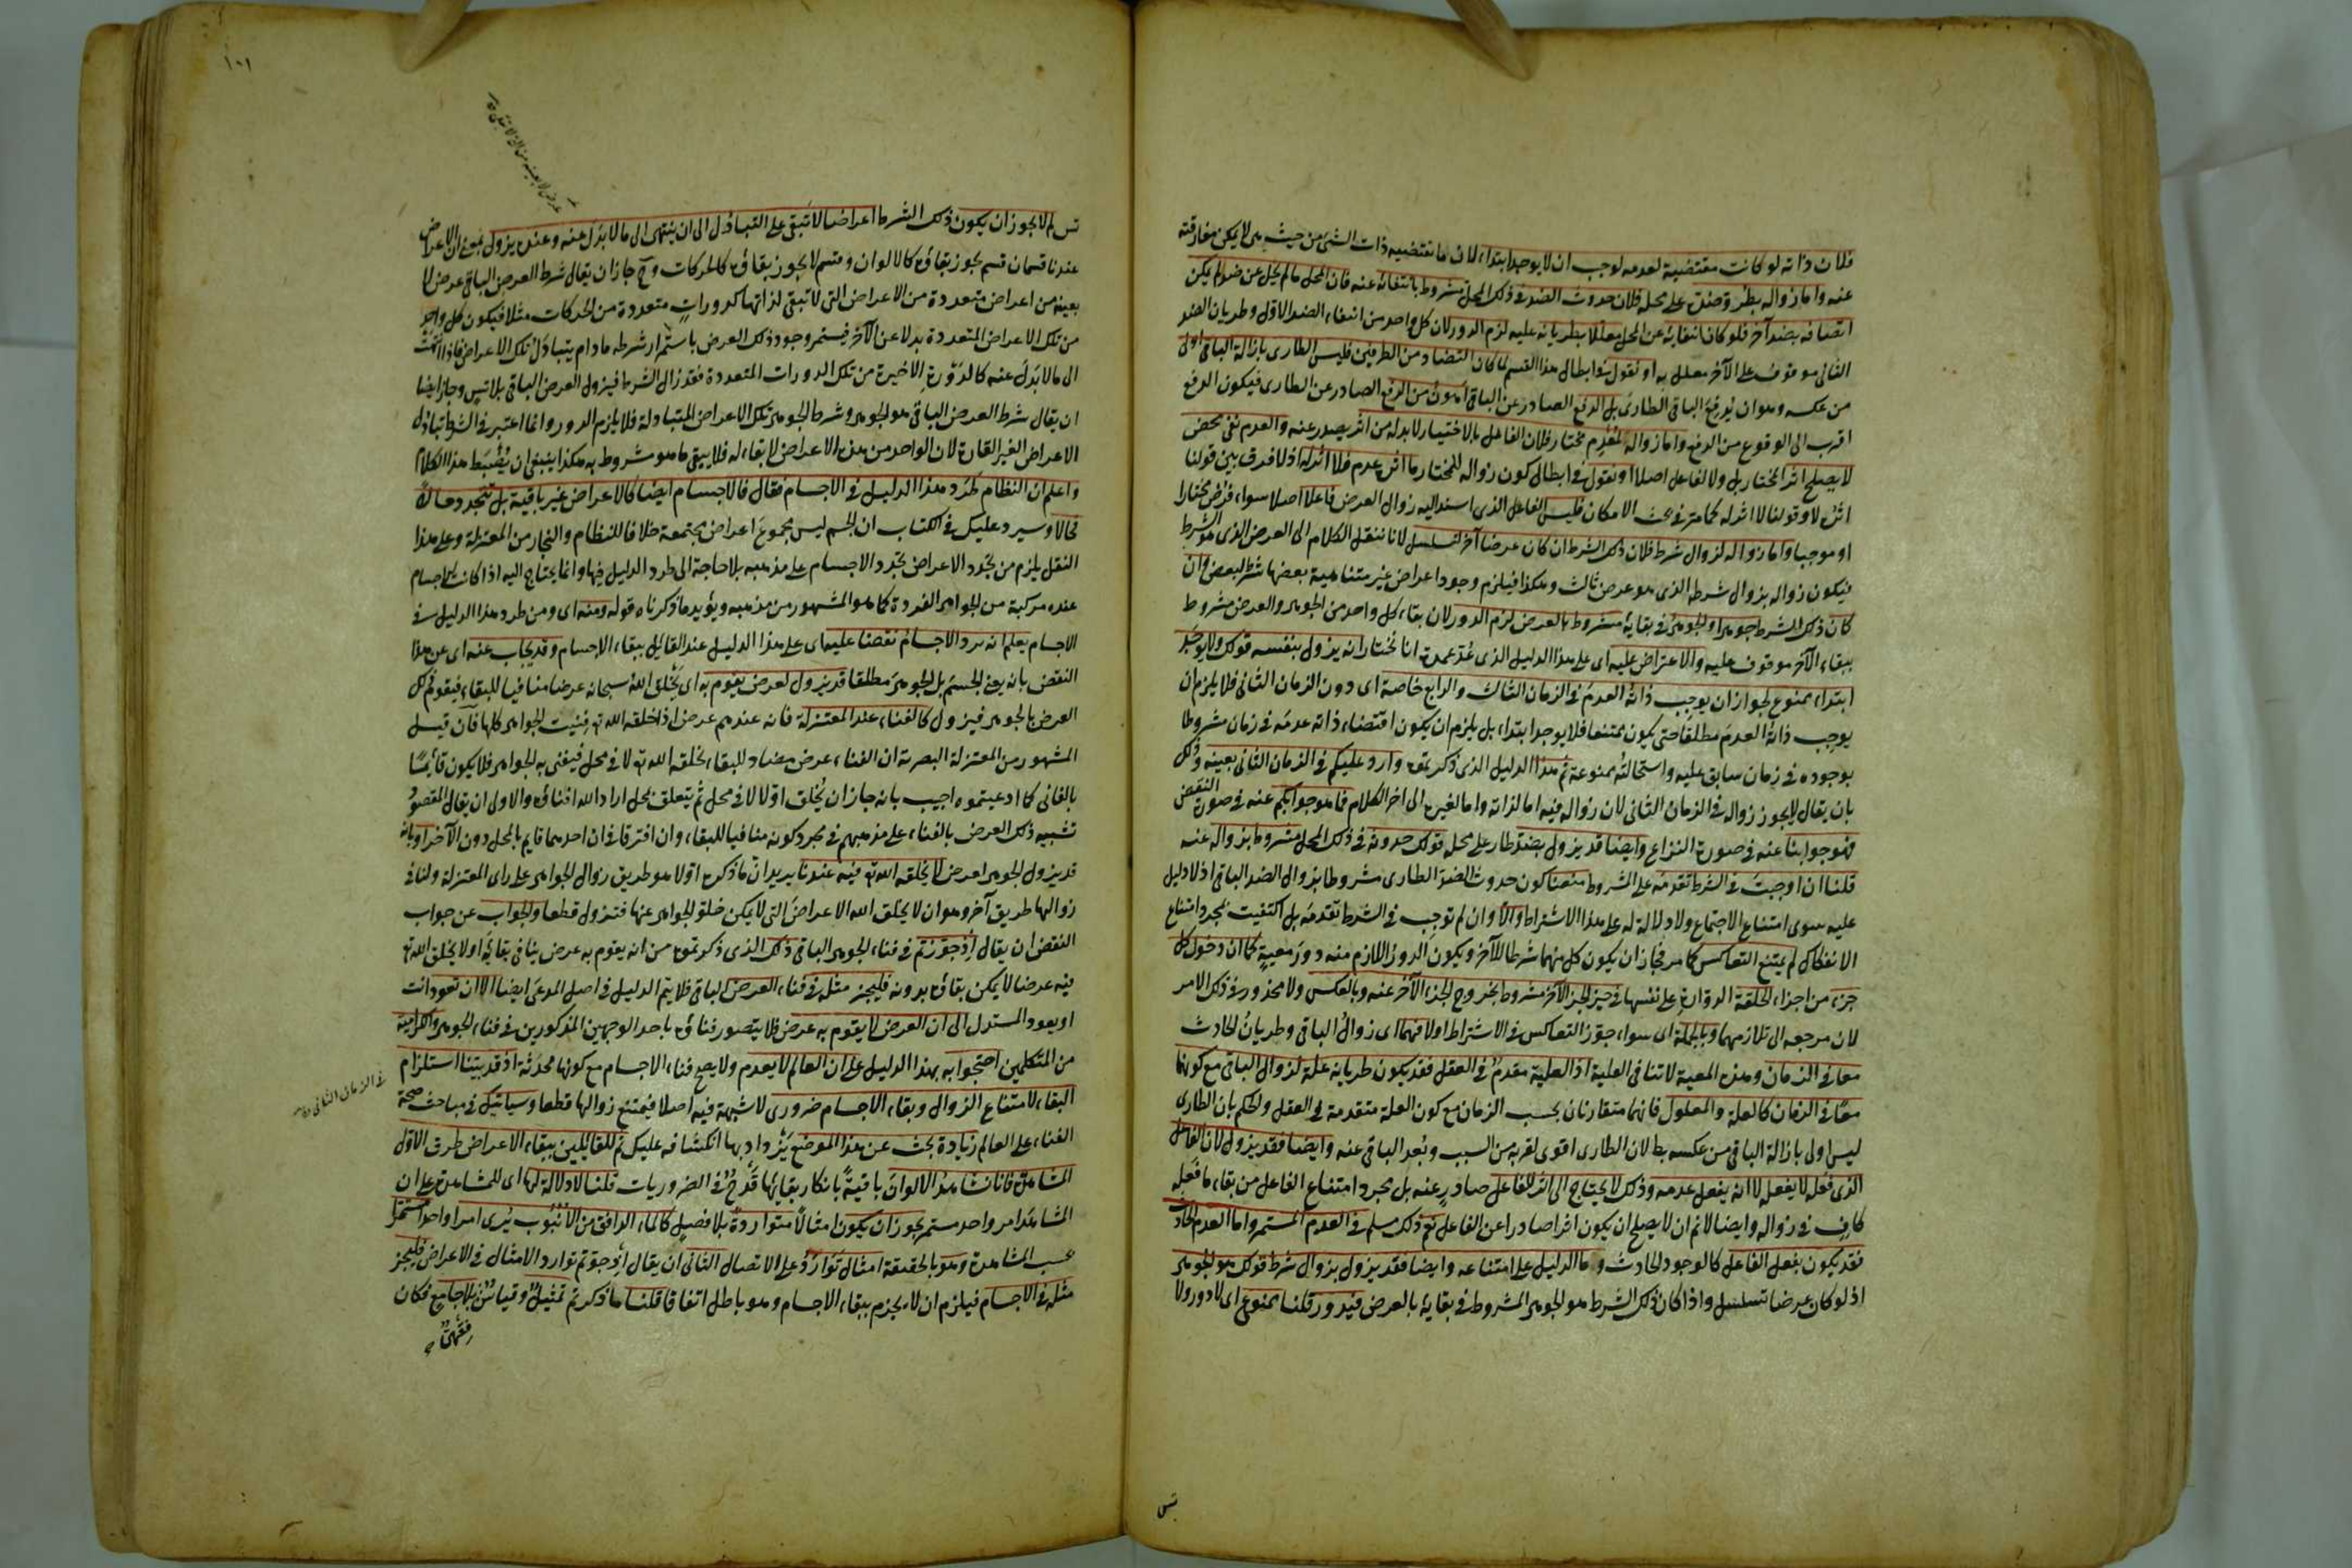 فلان ذاته لو كانت مقتضية لعدمه لوجب ان لا يوجد ابتداء لان ما تقتضيه ذات الشئ من حيث هى لا يمكن مفارقته
عنه واما زواله بطرو ضده على محله فلان حدوث الضد فى ذلك المحل مشروط بانتفائه عنه فان المحل ما لم يخل عن ضد لم يكن
اتصافه بضد آخر فلو كان انتفائه عن المحل معللا بطريانه عليه لزم الدور لان كل واحد من انتفاء الضد الاول وطريان الضد
الثانى موقوف على الآخر معلل به او نقول فى ابطال هذا القسم لما كان التضاد من الطرفين فليس الطارى بازالة الباقى اولى
من عكسه وهو ان يدفع الباقى الطارى بل الدفع الصادر عن الباقى اهون من الرفع الصادر عن الطارى فيكون الدفع
اقرب الى الوقوع من الرفع واما زواله لمعدم مختار فلان الفاعل بالاختيار لا بد له من اثر يصدر عنه والعدم نفى محض
لا يصلح اثر المختار بل ولا لفاعل اصلا او نقول فى ابطال كون زواله للمختار ما اثره عدم فلا اثر له اذ لا فرق بين قولنا
اثره لا وقولنا لا اثر له كما مر فى بحث الامكان فليس الفاعل الذى اسند اليه زوال العرض فاعلا اصلا سواء فرض مختارا
او موجبا واما زواله لزوال شرط فلان ذلك الشرط ان كان عرضا آخر لتسلسل لانا ننقل الكلام الى العرض الذى هو الشرط
فيكون زواله بزوال شرطه الذى هو عرض ثالث وهكذا فيلزم وجود اعراض غير متناهية بعضها شرط لبعض وان
كان ذلك الشرط جوهرا والجوهر فى بقائه مشروط بالعرض لزم الدور لان بقاء كل واحد من الجوهر والعرض مشروط
ببقاء الآخر موقوف عليه والاعتراض عليه اى على هذا الدليل الذى هو عمدة انا نختار انه يزول بنفسه قولك ولا يوجد
ابتداء ممنوع لجواز ان يوجب ذاته العدم فى الزمان الثالث والرابع خاصة اى دون الزمان الثانى فلا يلزم ان
يوجب ذاته العدم مطلقا حتى يكون ممتنعا فلا يوجد ابتداء بل يلزم ان يكون اقتضاء ذاته عدمه فى زمان مشروطا
بوجوده فى زمان سابق عليه واستحالته ممنوعة ثم هذا الدليل الذى ذكرتموه وارد عليكم فى الزمان الثانى بعينه وذلك
بان يقال لا يجوز زواله فى الزمان الثانى لان زواله فيه اما لذاته واما لغيره الى اخر الكلام فما هو جوابكم عنه فى صورة النقض
فهو جوابنا عنه فى صورة النزاع وايضا قد يزول بضد طار على محله قولك حدوثه فى ذلك المحل مشروط بزواله عنه
قلنا ان اوجبت فى الشرط تقدمه على المشروط منعنا كون حدوث الضد الطارى مشروطا بزوال الضد الباقى اذ لا دليل
عليه سوى امتناع الاجتماع ولا دلالة له على هذا الاشتراط والا وان لم توجب فى الشرط تقدمه بل اكتفيت بمجرد امتناع
الانفكاك لم يمتنع التعاكس كما مر فجاز ان يكون كل منهما شرطا للآخر ويكون الدور اللازم منه دور معية كما ان دخول كل
جزء من اجزاء الحلقة الدوارة على نفسها فى حيز الجزء الآخر مشروط بخروج الجزء الآخر عنه وبالعكس ولا محذور فى ذلك الامر
لان مرجعه الى تلازمهما وبالجملة اى سواء جوز التعاكس فى الاشتراط او لا فهما اى زوال الباقى وطريان الحادث
معا فى الزمان وهذه المعية لا تنافى العلية اذ العلية مقدم فى العقل فقد يكون طريانه علة لزوال الباقى مع كونهما
معا فى الزمان كالعلة والمعلول فانهما متقارنان بحسب الزمان مع كون العلة متقدمة فى العقل والحكم بان الطارى
ليس اولى بازالة الباقى من عكسه بط لان الطارى اقوى لقربه من السبب وبعد الباقى عنه وايضا فقد يزول لان الفاعل
الذى فعله لا يفعله لا انه يفعل عدمه وذلك لا يحتاج الى اثر للفاعل صادر عنه بل مجرد امتناع الفاعل من بقاء ما فعله
كاف فى زواله وايضا لا نم ان لا يصلح ان يكون اثرا صادرا عن الفاعل نعم ذلك مسلم فى العدم المستمر واما العدم الحادث
فقد يكون بفعل الفاعل كالوجود الحادث وما الدليل على امتناعه وايضا فقد يزول بزوال شرط قولك هو الجوهر
اذ لو كان عرضا تسلسل واذا كان ذلك الشرط هو الجوهر المشروط فى بقائه بالعرض فيدور قلنا ممنوع اى لا دور ولا
تس
١٠١
تس لم لا يجوز ان يكون ذلك الشرط اعراضا لا تبقى على التبادل الى ان ينتهى الى ما لا بدل عنه وعنده يزول يعنى ان الاعراض
عندنا قسمان قسم يجوز بقاؤه كالالوان وقسم لا يجوز بقاؤه كالحركات وح جاز ان يقال شرط العرض الباقى عرض لا
بعينه من اعراض متعددة من الاعراض التى لا تبقى لذاتها كدورات متعددة من الحركات مثلا فيكون كل واحد
من تلك الاعراض المتعددة بدلا عن الآخر فيستمر وجود ذلك العرض باستمرار شرطه ما دام يتبادل تلك الاعراض فاذا انتهت
الى ما لا بدل عنه كالدورة الاخيرة من تلك الدورات المتعددة فقد زال الشرط فيزول العرض الباقى بلا تس وجاز ايضا
ان يقال شرط العرض الباقى هو الجوهر وشرط الجوهر تلك الاعراض المتبادلة فلا يلزم الدور وانما اعتبر فى الشرط تبادل
الاعراض الغير القارة لان الواحد من هذه الاعراض لا بقاء له فلا يبقى ما هو مشروط به هكذا ينبغى ان يضبط هذا الكلام
واعلم ان النظام طرد هذا الدليل فى الاجسام فقال فالاجسام ايضا كالاعراض غير باقية بل تتجدد حالا
فحالا وسيرد عليك فى الكتاب ان الجسم ليس مجموع اعراض مجتمعة خلافا للنظام والنجار من المعتزلة وعلى هذا
النقل يلزم من تجدد الاعراض تجدد الاجسام على مذهبه بلا حاجة الى طرد الدليل فيها وانما يحتاج اليه اذا كانت الاجسام
عنده مركبة من الجواهر الفردة كما هو المشهور من مذهبه ويؤيد ما ذكرناه قوله ومنه اى ومن طرد هذا الدليل فى
الاجسام يعلم انه يرد الاجسام نقضا عليه اى على هذا الدليل عند القائل ببقاء الاجسام وقد يجاب عنه اى عن هذا
النقض بانه يعنى الجسم بل الجوهر مطلقا قد يزول لعرض يقوم به اى يخلق الله سبحانه عرضا منافيا للبقاء فيقوم ذلك
العرض بالجوهر فيزول كالفناء عند المعتزلة فانه عندهم عرض اذا خلقه الله تع فنيت الجواهر كلها فان قيل
المشهور من المعتزلة البصرية ان الفناء عرض مضاد للبقاء يخلقه الله تع لا فى محل فيفنى به الجواهر فلا يكون قائما
بالفانى كما ادعيتموه اجيب بانه جاز ان يخلق اولا لا فى محل ثم يتعلق بمحل اراد الله افناؤه والاولى ان يقال المقصود
تشبيه ذلك العرض بالفناء على مذهبهم فى مجرد كونه منافيا للبقاء وان افترقا فى ان احدهما قايم بالمحل دون الآخر او بانه
قد يزول الجوهر لعرض لا يخلقه الله تع فيه عندنا يريد ان ما ذكره اولا هو طريق زوال الجواهر على راى المعتزلة ولنا فى
زوالها طريق آخر وهو ان لا يخلق الله الاعراض التى لا يمكن خلو الجواهر عنها فتزول قطعا والجواب عن جواب
النقض ان يقال اذ جوزتم فى فناء الجوهر الباقى ذلك الذى ذكرتموه من انه يقوم به عرض ينافى بقائه او لا يخلق الله تع
فيه عرضا لا يمكن بقاؤه بدونه فليجز مثله فى فناء العرض الباقى فلا يتم الدليل فى اصل المدعى ايضا الا ان تعود انت
او يعود المستدل الى ان العرض لا يقوم به عرض فلا يتصور فناؤه باحد الوجهين المذكورين فى فناء الجوهر والكرامية
من المتكلمين احتجوا به بهذا الدليل على ان العالم لا يعدم ولا يصح فناء الاجسام مع كونها محدثة اذ قد بينا استلزام
البقاء لامتناع الزوال وبقاء الاجسام ضرورى لا شبهة فيه اصلا فيمتنع زوالها قطعا وسياتيك فى مباحث صحة
الفناء على العالم زيادة بحث عن هذا الموضع يزداد بها انكشافه عليك ثم للقائلين ببقاء الاعراض طرق الاول
المشاهدة فانا نشاهد الالوان باقية بانكار بقائها قدح فى الضروريات قلنا لا دلالة لها اى للمشاهدة على ان
المشاهد امر واحد مستمر يجوز ان يكون امثالا متواردة بلا فصل كالماء الدافق من الانبوب يرى امرا واحدا مستمرا
بحسب المشاهدة وهو بالحقيقة امثال توارد على الاتصال الثانى ان يقال لو جوزتم توارد الامثال فى الاعراض فليجز
مثله فى الاجسام فيلزم ان لا يجزم ببقاء الاجسام وهو باطل اتفاقا قلنا ما ذكرتم تمثيل وقياس بلا جامع فكان
فقهى
فى الزمان الثانى